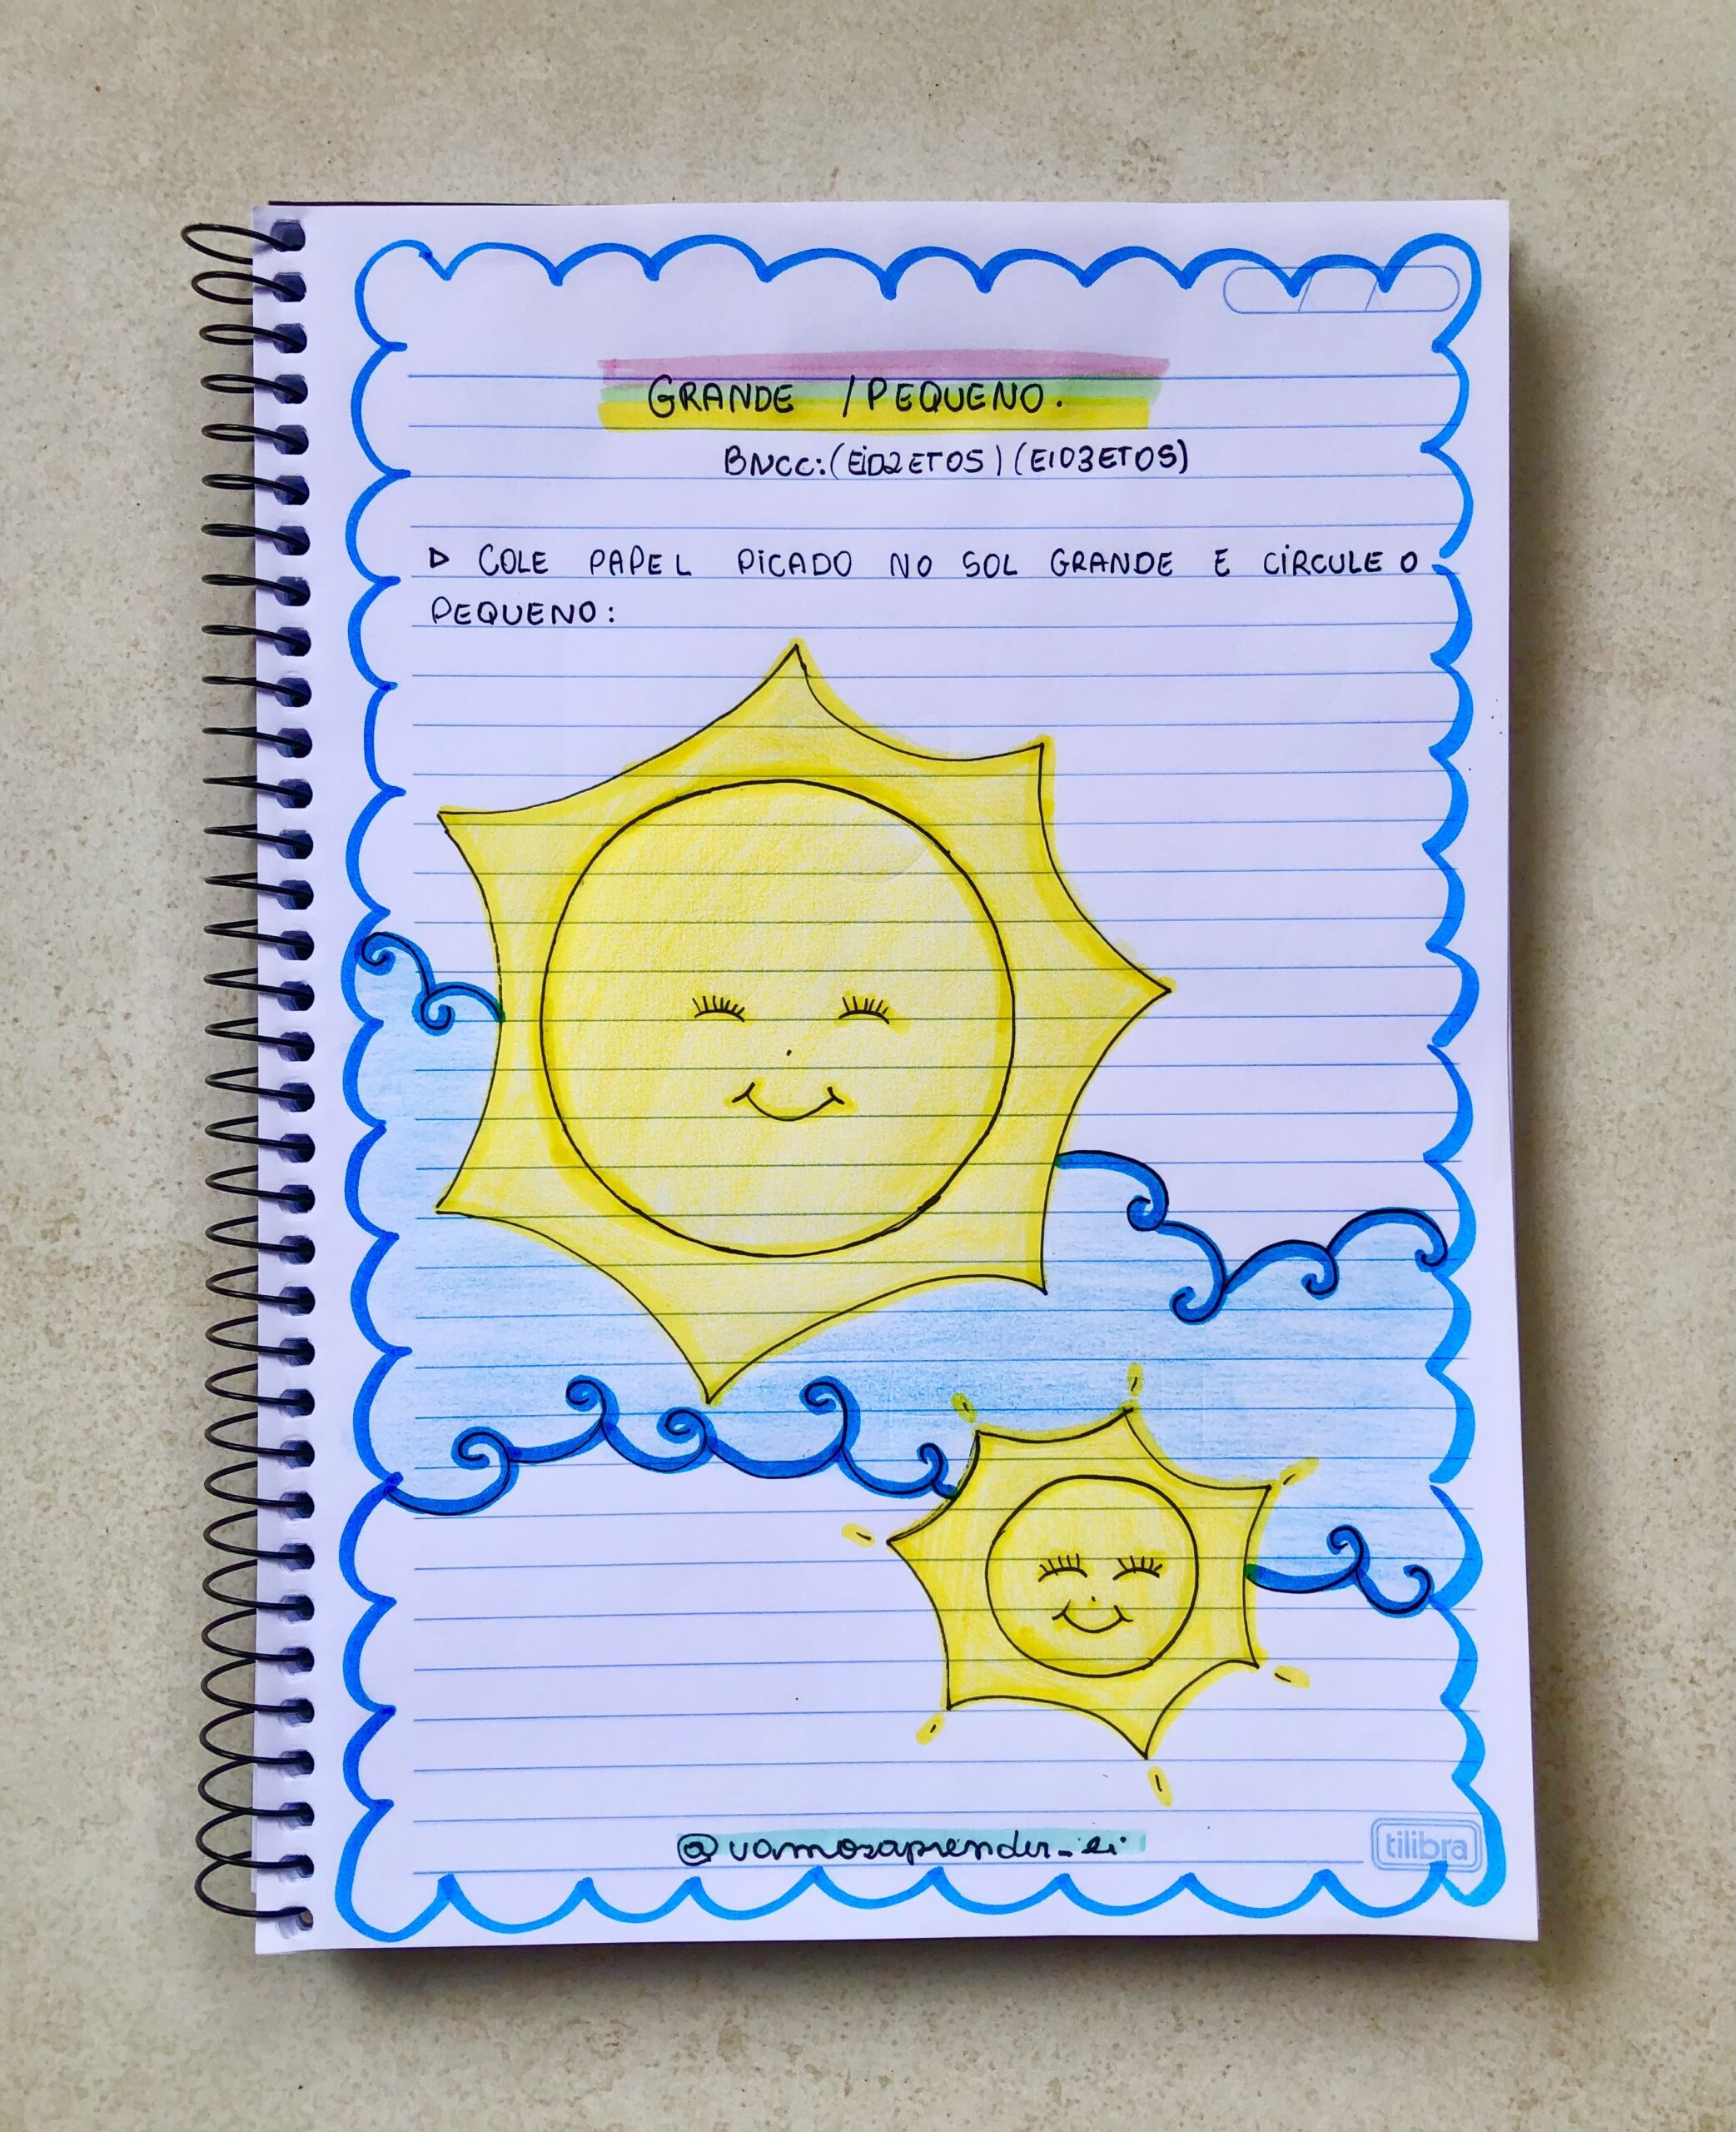 GRANDE / PEQUENO.
BNCC: (EI02ET05) (EI03ET05)
▷ COLE PAPEL PICADO NO SOL GRANDE E CIRCULE O
PEQUENO:
@vamosaprender_ei
tilibra